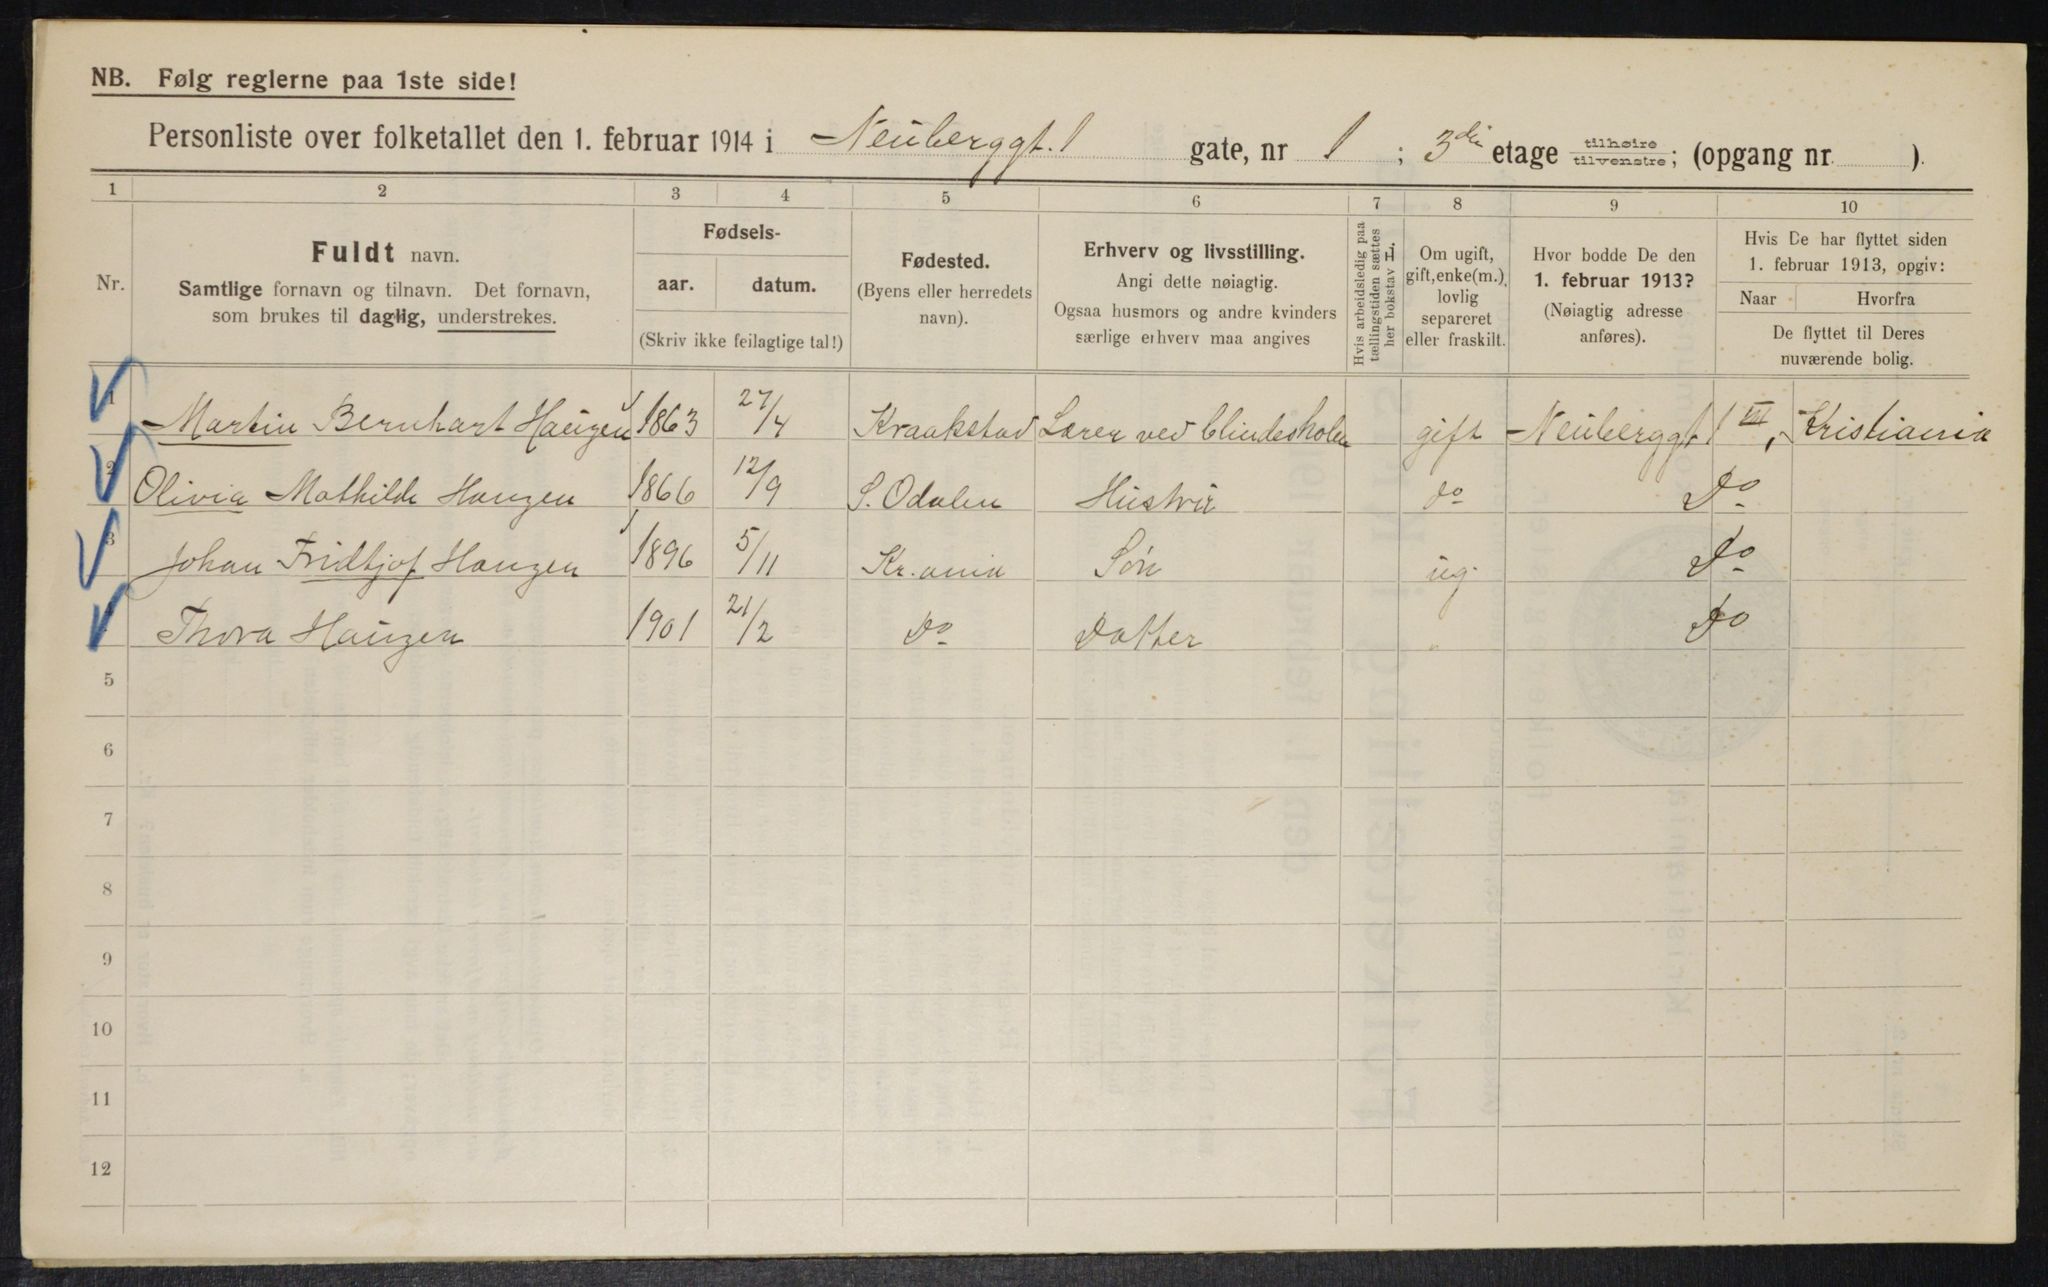 NB. Følg reglerne paa 1ste side!
Personliste over folketallet den 1. februar 1914 i Neuberggt. 1 gate, nr 1 ; 3die etage tilhøire tilvenstre; (opgang nr ).
1 2 3 4 5 6 7 8 9 10
Nr.
Fuldt navn.
Samtlige fornavn og tilnavn. Det fornavn,
som brukes til daglig, understrekes.
Fødsels-
aar. datum.
(Skriv ikke feilagtige tal!)
Fødested.
(Byens eller herredets
navn).
Erhverv og livsstilling.
Angi dette nøiagtig.
Ogsaa husmors og andre kvinders
særlige erhverv maa angives
Hvis arbeidsledig paa
tællingstiden sættes
her bokstav L.
Om ugift,
gift, enke(m.),
lovlig
separeret
eller fraskilt.
Hvor bodde De den
1. februar 1913?
(Nøiagtig adresse
anføres).
Hvis De har flyttet siden
1. februar 1913, opgiv:
Naar Hvorfra
De flyttet til Deres
nuværende bolig.
1 Martin Bernhart Haugen 1863 27/4 Kraakstad Lærer ved blindeskolen gift Neuberggt 1 III, Kristiania
2 Olivia Mathilde Haugen 1866 12/9 S. Odalen Hustru do Do
3 Johan Fridtjof Haugen 1896 5/11 Kr.ania Søn ug. Do
4 Thora Haugen 1901 21/2 Do Datter " Do
5
6
7
8
9
10
11
12